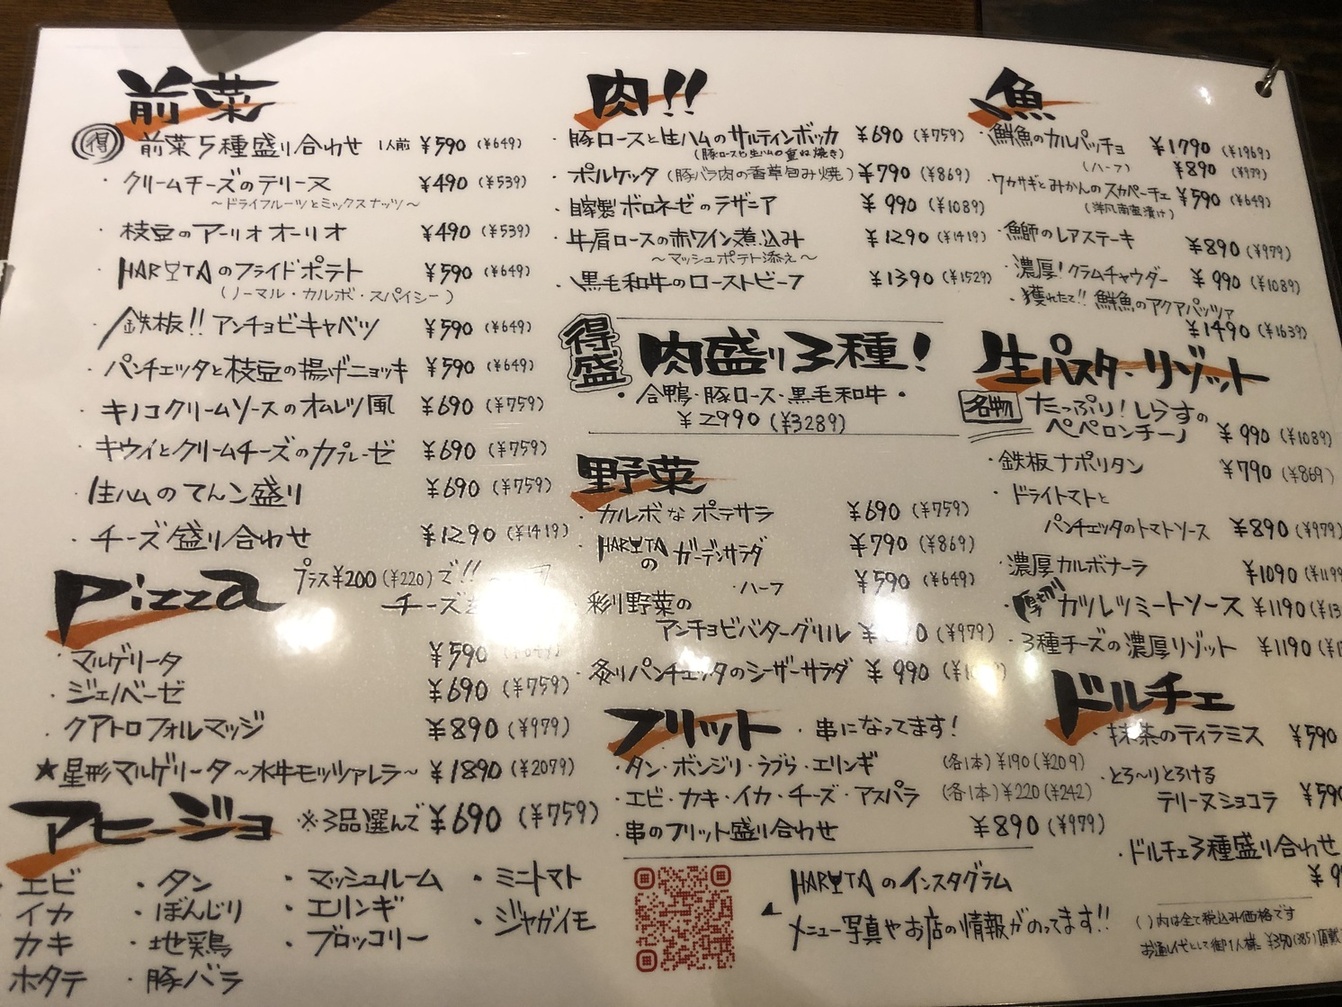 前菜
得 前菜5種盛り合わせ 1人前 ¥590 (¥649)
・クリームチーズのテリーヌ ¥490 (¥539)
〜ドライフルーツとミックスナッツ〜
・枝豆のアーリオオーリオ ¥490 (¥539)
・HARUTAのフライドポテト ¥590 (¥649)
(ノーマル・カルボ・スパイシー)
・鉄板!! アンチョビキャベツ ¥590 (¥649)
・パンチェッタと枝豆の揚げニョッキ ¥590 (¥649)
・キノコクリームソースのオムレツ風 ¥690 (¥759)
・キウイとクリームチーズのカプレーゼ ¥690 (¥759)
・生ハムのてんこ盛り ¥690 (¥759)
・チーズ盛り合わせ ¥1290 (¥1419)
Pizza プラス¥200 (¥220) で!!
チーズ
・マルゲリータ ¥590
・ジェノベーゼ ¥690 (¥759)
・クアトロフォルマッジ ¥890 (¥979)
★星形マルゲリータ〜水牛モッツァレラ〜 ¥1890 (¥2079)
アヒージョ ※3品選んで ¥690 (¥759)
エビ ・タン ・マッシュルーム ・ミニトマト
イカ ・ぼんじり ・エリンギ ・ジャガイモ
カキ ・地鶏 ・ブロッコリー
ホタテ ・豚バラ
肉!!
・豚ロースと生ハムのサルティンボッカ ¥690 (¥759)
(豚ロースと生ハムの重ね焼き)
・ポルケッタ (豚バラ肉の香草包み焼) ¥790 (¥869)
・自家製ボロネーゼのラザニア ¥990 (¥1089)
・牛肩ロースの赤ワイン煮込み ¥1290 (¥1419)
〜マッシュポテト添え〜
・黒毛和牛のローストビーフ ¥1390 (¥1529)
得盛 肉盛り3種!
・合鴨・豚ロース・黒毛和牛・
¥2990 (¥3289)
野菜
・カルボなポテサラ ¥690 (¥759)
・HARUTAのガーデンサラダ ¥790 (¥869)
・ハーフ ¥590 (¥649)
彩り野菜の
アンチョビバターグリル (¥979)
・炙りパンチェッタのシーザーサラダ ¥990
フリット ・串になってます!
・タン・ボンジリ・ラブラ・エリンギ (各1本) ¥190 (¥209)
・エビ・カキ・イカ・チーズ・アスパラ (各1本) ¥220 (¥242)
・串のフリット盛り合わせ ¥890 (¥979)
HARUTAのインスタグラム
メニュー写真やお店の情報がのってます!!
魚
・鮮魚のカルパッチョ ¥1790 (¥1969)
(ハーフ) ¥890 (¥979)
・ワカサギとみかんのスカペーチェ ¥590 (¥649)
(洋風南蛮漬け)
・鰤のレアステーキ ¥890 (¥979)
・濃厚!クラムチャウダー ¥990 (¥1089)
・獲れたて!! 鮮魚のアクアパッツァ
¥1490 (¥1639)
生パスタ・リゾット
名物 たっぷり!しらすの
ペペロンチーノ ¥990 (¥1089)
・鉄板ナポリタン ¥790 (¥869)
・ドライトマトと
パンチェッタのトマトソース ¥890 (¥979)
・濃厚カルボナーラ ¥1090
・厚切 カツレツミートソース ¥1190
・3種チーズの濃厚リゾット ¥1190
ドルチェ
・抹茶のティラミス ¥590
・とろ〜りとろける
テリーヌショコラ ¥590
・ドルチェ3種盛り合わせ
( )内は全て税込み価格です
お通し代として御1人様 ¥350 (385) 頂戴